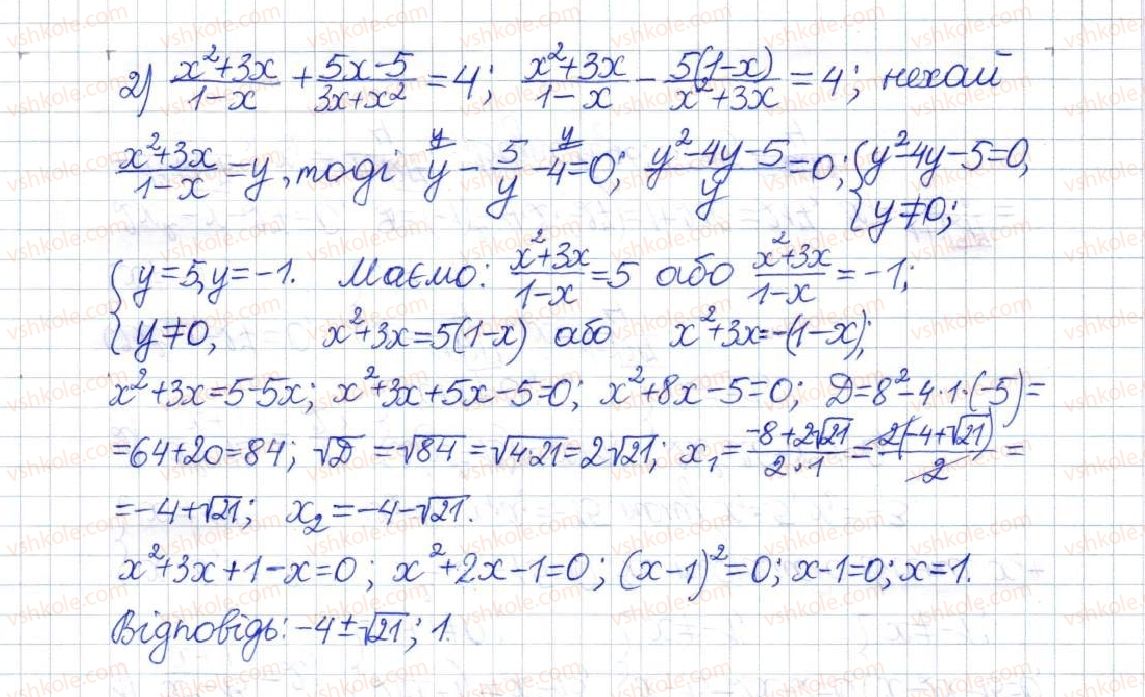 2) (x²+3x)/(1-x) + (5x-5)/(3x+x²) = 4; (x²+3x)/(1-x) - 5(1-x)/(x²+3x) = 4; нехай
(x²+3x)/(1-x) = y, тоді y/ y - 5/y - y/ 4 = 0; (y²-4y-5)/y = 0; { y²-4y-5=0,
y≠0;
{ y=5, y=-1. Маємо: (x²+3x)/(1-x) = 5 або (x²+3x)/(1-x) = -1;
y≠0, x²+3x=5(1-x) або x²+3x=-(1-x);
x²+3x=5-5x; x²+3x+5x-5=0; x²+8x-5=0; D=8²-4·1·(-5)=
=64+20=84; √D = √84 = √4·21 = 2√21; x₁ = (-8+2√21)/(2·1) = 2(-4+√21)/2 =
=-4+√21; x₂=-4-√21.
x²+3x+1-x=0; x²+2x-1=0; (x-1)²=0; x-1=0; x=1.
Відповідь: -4±√21; 1.
vshkole.com